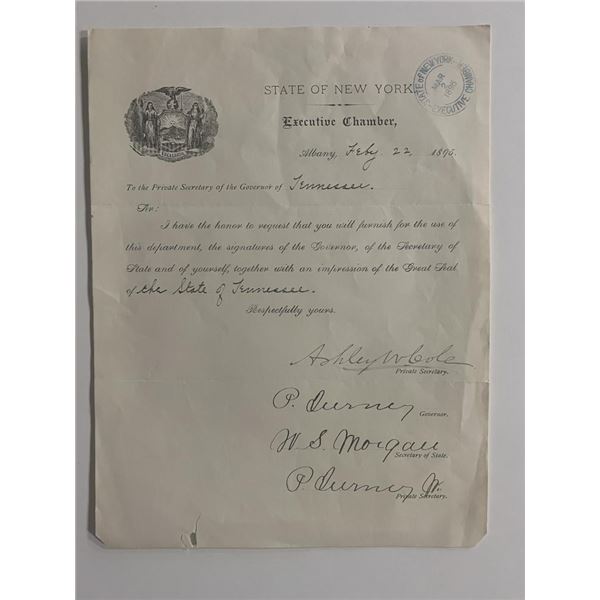 STATE OF NEW YORK
Executive Chamber,
STATE OF NEW YORK · EXECUTIVE CHAMBER
MAR
2
1895
EXCELSIOR
Albany, Feby 22 1895.
To the Private Secretary of the Governor of Tennessee.
Sir:
I have the honor to request that you will furnish for the use of
this department, the signatures of the Governor, of the Secretary of
State and of yourself, together with an impression of the Great Seal
of the State of Tennessee.
Respectfully yours.
Ashley W Cole
Private Secretary.
P. Turney
Governor.
W. S. Morgan
Secretary of State.
P. Turney Jr.
Private Secretary.